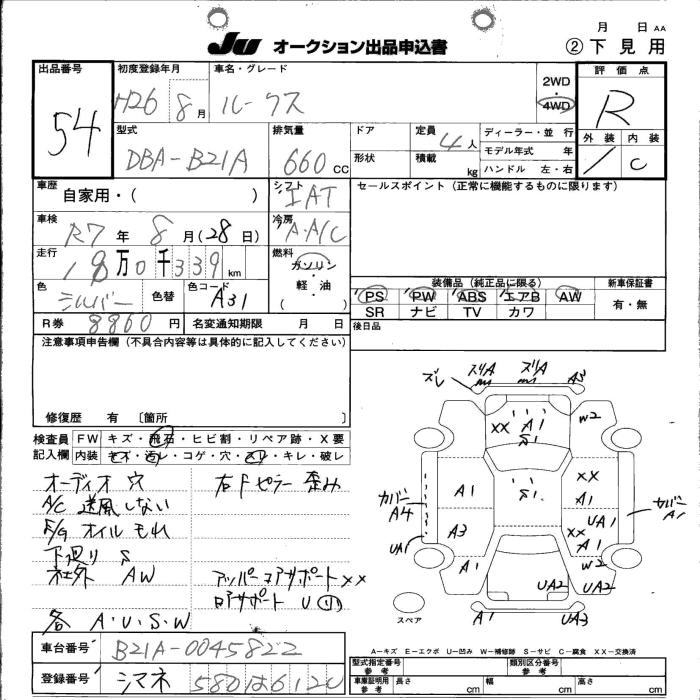 月 日 AA
JU オークション出品申込書 ②下見用
出品番号 初度登録年月 車名・グレード 2WD・4WD 評価点
54 H26 8月 ルークス R
型式 排気量 ドア 定員 4人 ディーラー・並 行 外装 内装
DBA-B21A 660CC 形状 積載 kg モデル年式 年 C
ハンドル 左・右
車歴 自家用・( ) シフト IAT セールスポイント (正常に機能するものに限ります)
車検 R7年 8月(28日) 冷房 A・A/C
走行 18万0千339km 燃料 ガソリン 軽・油 ( )
色 シルバー 色替 色コード A31
装備品 (純正品に限る) 新車保証書
PS PW ABS エアB AW 有・無
SR ナビ TV カワ
R券 8860円 名変通知期限 月 日 後日品
注意事項申告欄 (不具合内容等は具体的に記入してください)
修復歴 有 [箇所 ]
検査員記入欄 FW キズ・飛石・ヒビ割・リペア跡・X要
内装 キズ・汚レ・コゲ・穴・スリ・キレ・破レ
オーディオ穴 右Fピラー歪み
A/C 送風しない
E/G オイルもれ
下廻り S
社外 AW アッパーコアサポートXX
コアサポート U
各 A・U・S・W
ズレ ズリA ズリA A3
XX A1 S1 W2
カバーA4 A1 S1 XX A1 カバーA1
UA1 A3 XX A1 UA1
A1 W2 UA2 UA2
スペア A1 UA3
A-キズ E-エクボ U-凹み W-補修跡 S-サビ C-腐食 XX-交換済
車台番号 B21A-0045822
登録番号 シマネ 580 は 6120
型式指定番号 参考 類別区分番号 参考
車庫証明用 参考 長さ cm 幅 cm 高さ cm